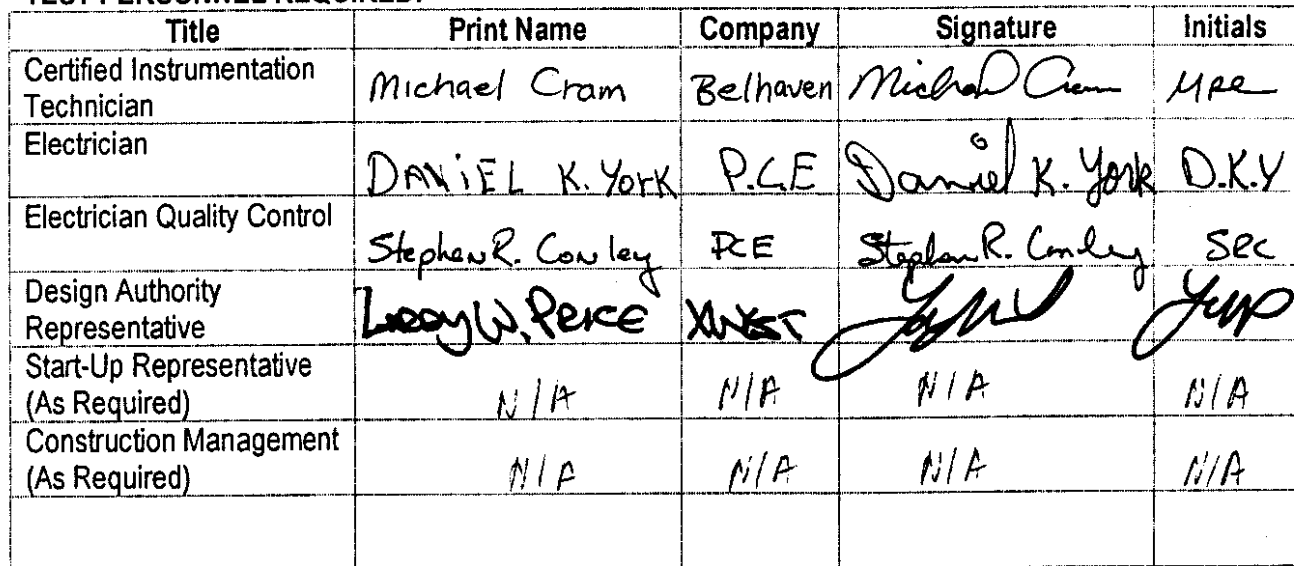 TEST PERSONNEL REQUIRED:
Title Print Name Company Signature Initials
Certified Instrumentation Technician Michael Cram Belhaven Michael Cram
Electrician DANiEL K. York P.C.E Daniel K. York D.K.Y
Electrician Quality Control Stephen R. Conley PCE Stephen R. Conley SRC
Design Authority Representative W.
Start-Up Representative (As Required) N/A N/A N/A N/A
Construction Management (As Required) N/A N/A N/A N/A